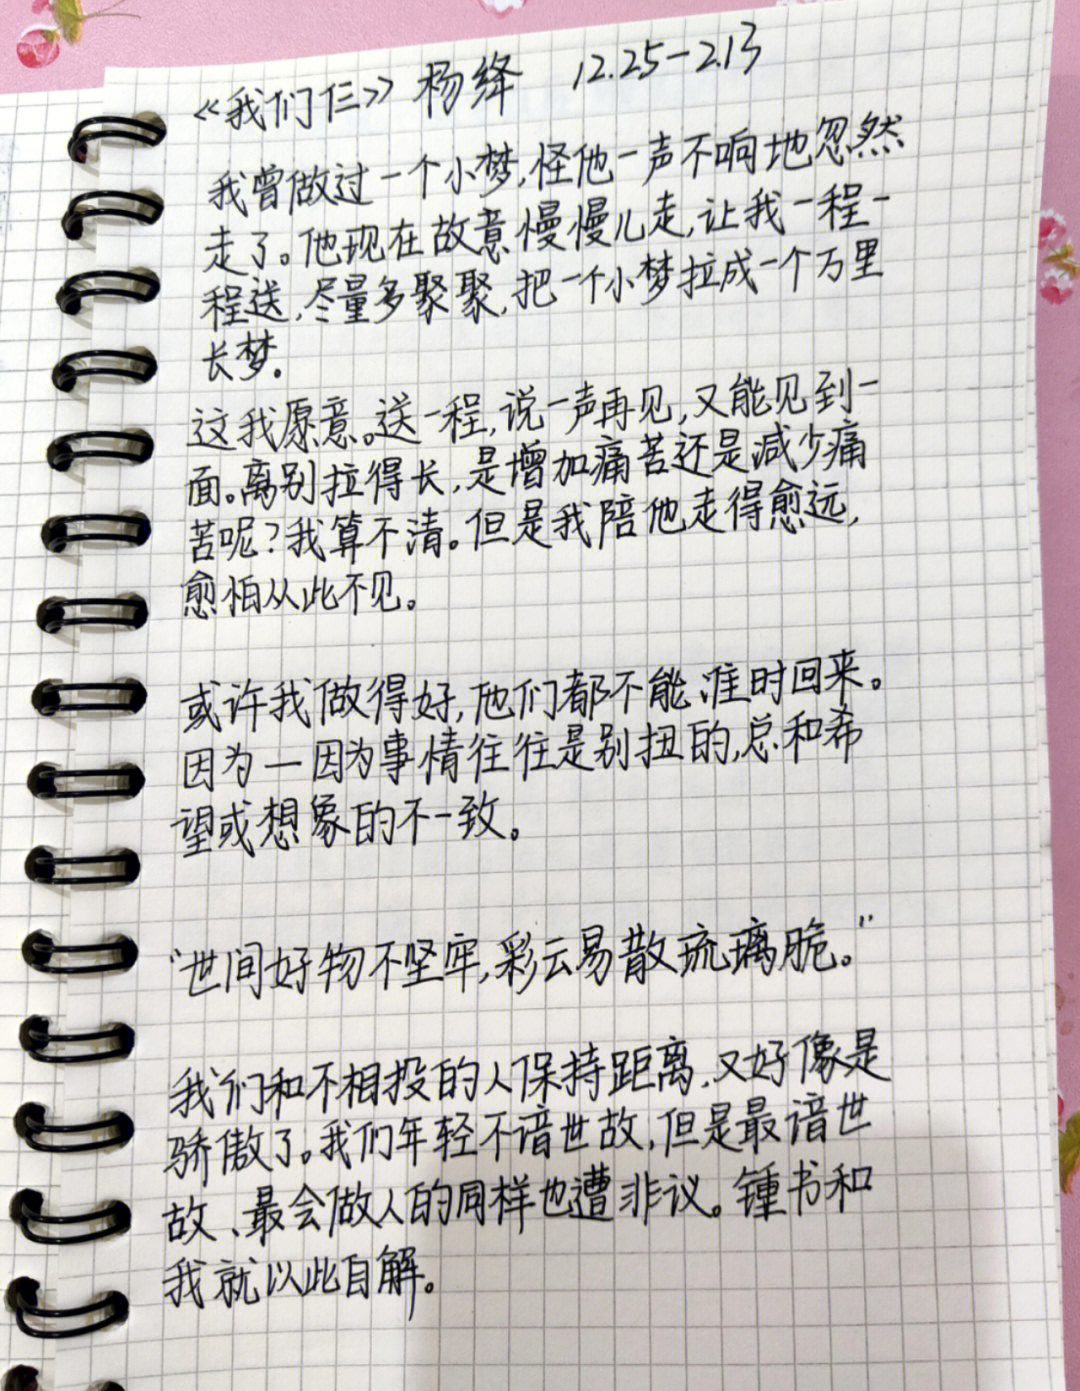 《我们仨》 杨绛 12.25-2.13
我曾做过一个小梦,怪他一声不响地忽然
走了。他现在故意慢慢儿走,让我一程一
程送,尽量多聚聚,把一个小梦拉成一个万里
长梦。
这我愿意。送一程,说一声再见,又能见到一
面。离别拉得长,是增加痛苦还是减少痛
苦呢?我算不清。但是我陪他走得愈远,
愈怕从此不见。
或许我做得好,他们都不能准时回来。
因为—因为事情往往是别扭的,总和希
望或想象的不一致。
“世间好物不坚牢,彩云易散琉璃脆。”
我们和不相投的人保持距离,又好像是
骄傲了。我们年轻不谙世故,但是最谙世
故、最会做人的同样也遭非议。锺书和
我就以此自解。